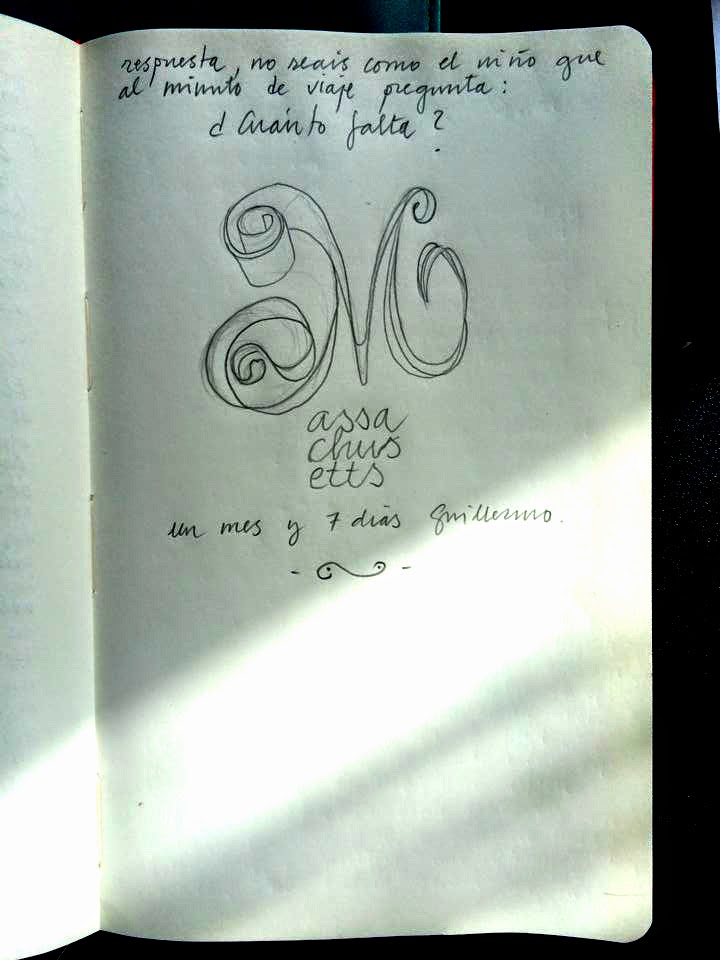 respuesta, no seais como el niño que
al minuto de viaje pregunta:
¿Cuánto falta?
M
assa
chus
etts
un mes y 7 días Guillermo.